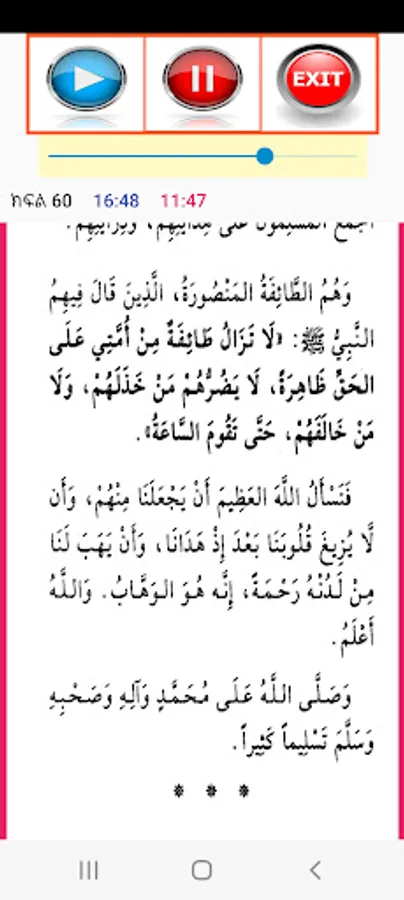 EXIT
ክፍል 60 16:48 11:47
أجمع المسلمون على هدايتهم، ودرايتهم.
وَهُمُ الطَّائِفَةُ المَنْصُورَةُ، الَّذِينَ قَالَ فِيهِمُ
النَّبِيُّ ﷺ: «لَا تَزَالُ طَائِفَةٌ مِنْ أُمَّتِي عَلَى
الحَقِّ ظَاهِرَةً، لَا يَضُرُّهُمْ مَنْ خَذَلَهُمْ، وَلَا
مَنْ خَالَفَهُمْ، حَتَّى تَقُومَ السَّاعَةُ».
فَنَسْأَلُ اللَّهَ العَظِيمَ أَنْ يَجْعَلَنَا مِنْهُمْ، وَأَن
لَّا يُزِيغَ قُلُوبَنَا بَعْدَ إِذْ هَدَانَا، وَأَنْ يَهَبَ لَنَا
مِنْ لَدُنْهُ رَحْمَةً، إِنَّه هُوَ الوَهَّابُ. وَاللَّهُ
أَعْلَمُ.
وَصَلَّى اللَّهُ عَلَى مُحَمَّدٍ وَآلِهِ وَصَحْبِهِ
وَسَلَّمَ تَسْلِيماً كَثِيراً.
* * *